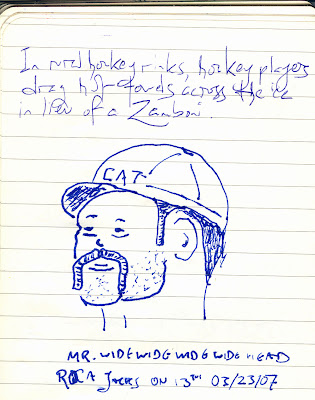 In rural hockey rinks, hockey players
drag hot towels across the ice
in lieu of a Zamboni.
CAT
MR. WIDEWIDEWIDEWIDE HEAD
JACKS ON 13TH 03/23/07